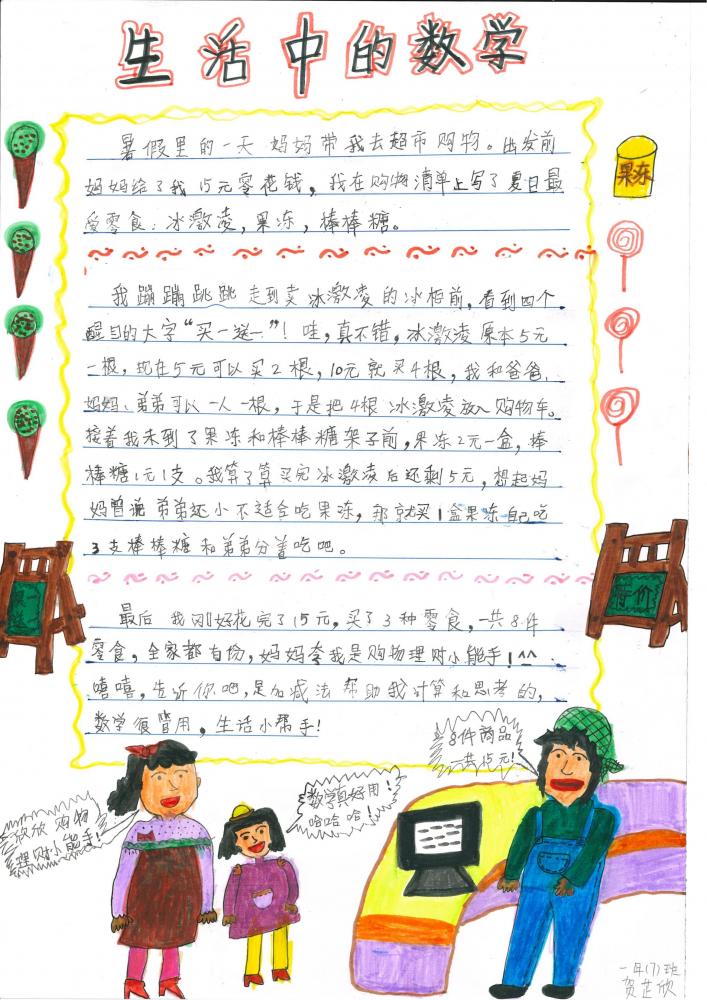 生活中的数学
暑假里的一天 妈妈带我去超市购物。出发前
妈妈给了我15元零花钱，我在购物清单上写了夏日最
爱零食：冰激凌，果冻，棒棒糖。
果冻
我蹦蹦跳跳走到卖冰激凌的冰柜前，看到四个
醒目的大字“买一送一”！哇，真不错，冰激凌原本5元
一根，现在5元可以买2根，10元就买4根，我和爸爸、
妈妈、弟弟可以一人一根，于是把4根冰激凌放入购物车。
接着我来到了果冻和棒棒糖架子前，果冻2元一盒，棒
棒糖1元1支。我算了算买完冰激凌后还剩5元，想起妈
妈曾说弟弟还小不适合吃果冻，那就买1盒果冻自己吃
3支棒棒糖和弟弟分着吃吧。
买一送一
特价
最后 我刚好花完了15元，买了3种零食，一共8件
零食，全家都有份，妈妈夸我是购物理财小能手！^^
嘻嘻，告诉你吧，是加减法帮助我计算和思考的，
数学很管用，生活小帮手！
欣欣 购物
理财小能手！
数学真好用！
哈哈哈！
8件商品
一共15元！
一年(7)班
贺芷欣